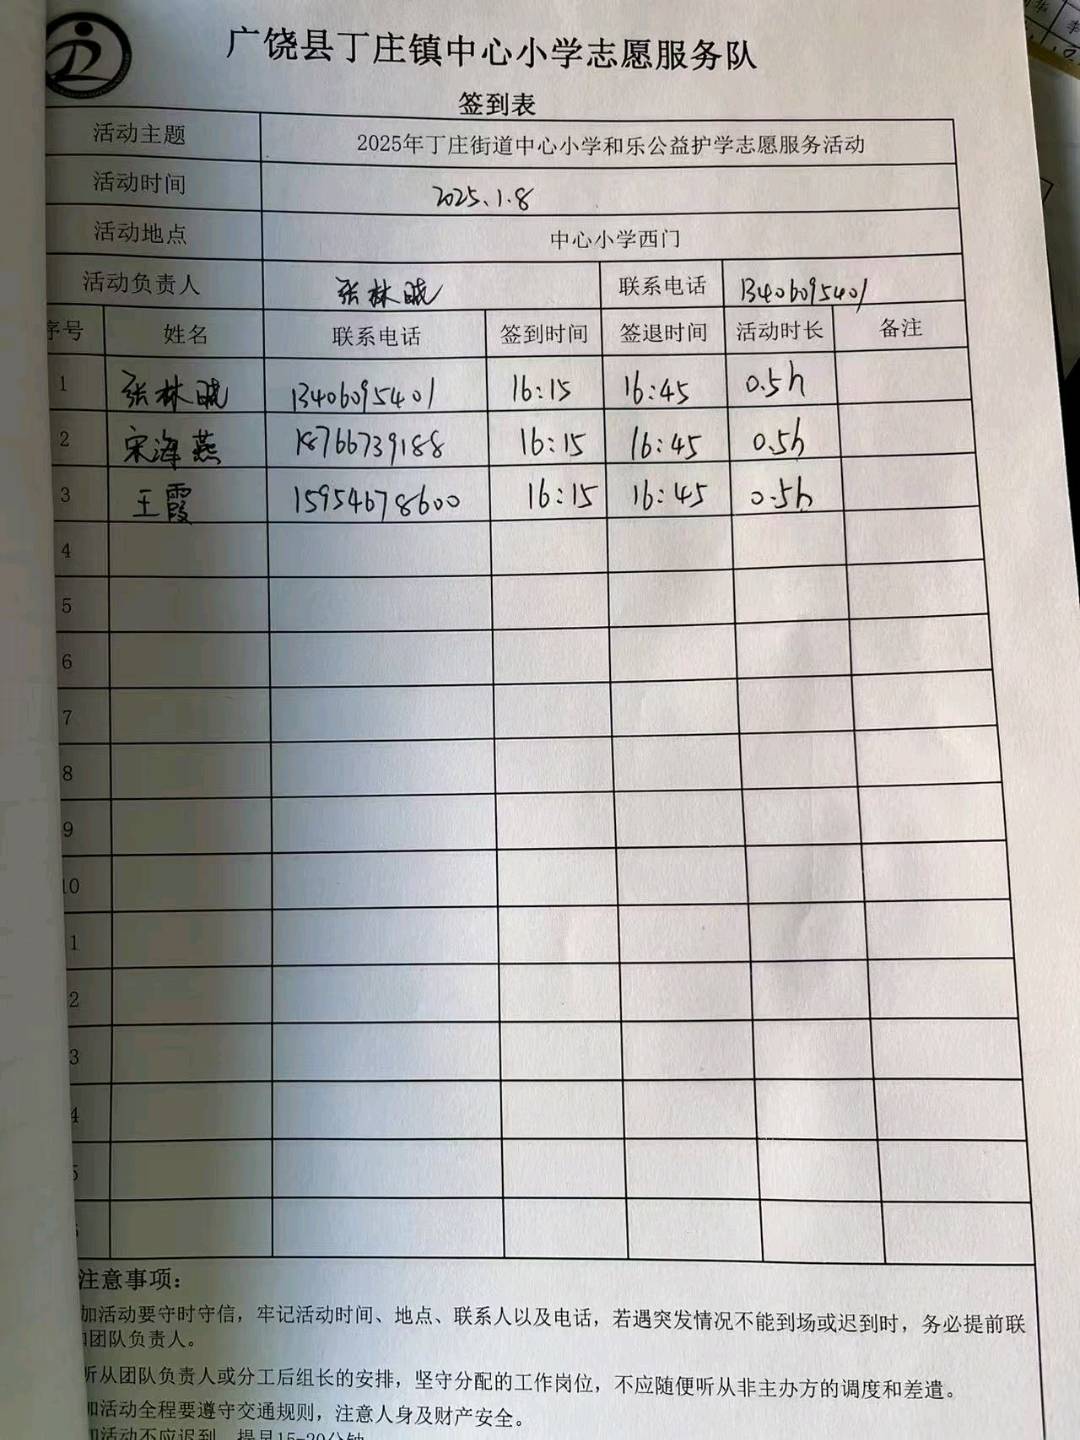 广饶县丁庄镇中心小学志愿服务队
签到表
活动主题 2025年丁庄街道中心小学和乐公益护学志愿服务活动
活动时间 2025.1.8
活动地点 中心小学西门
活动负责人 张林晓 联系电话 13406095401
序号 姓名 联系电话 签到时间 签退时间 活动时长 备注
1 张林晓 13406095401 16:15 16:45 0.5h
2 宋海燕 18766739188 16:15 16:45 0.5h
3 王霞 15954678600 16:15 16:45 0.5h
4
5
6
7
8
9
10
1
2
3
4
5
注意事项：
加活动要守时守信，牢记活动时间、地点、联系人以及电话，若遇突发情况不能到场或迟到时，务必提前联
团队负责人。
听从团队负责人或分工后组长的安排，坚守分配的工作岗位，不应随便听从非主办方的调度和差遣。
加活动全程要遵守交通规则，注意人身及财产安全。
加活动不应迟到，提早15-20分钟